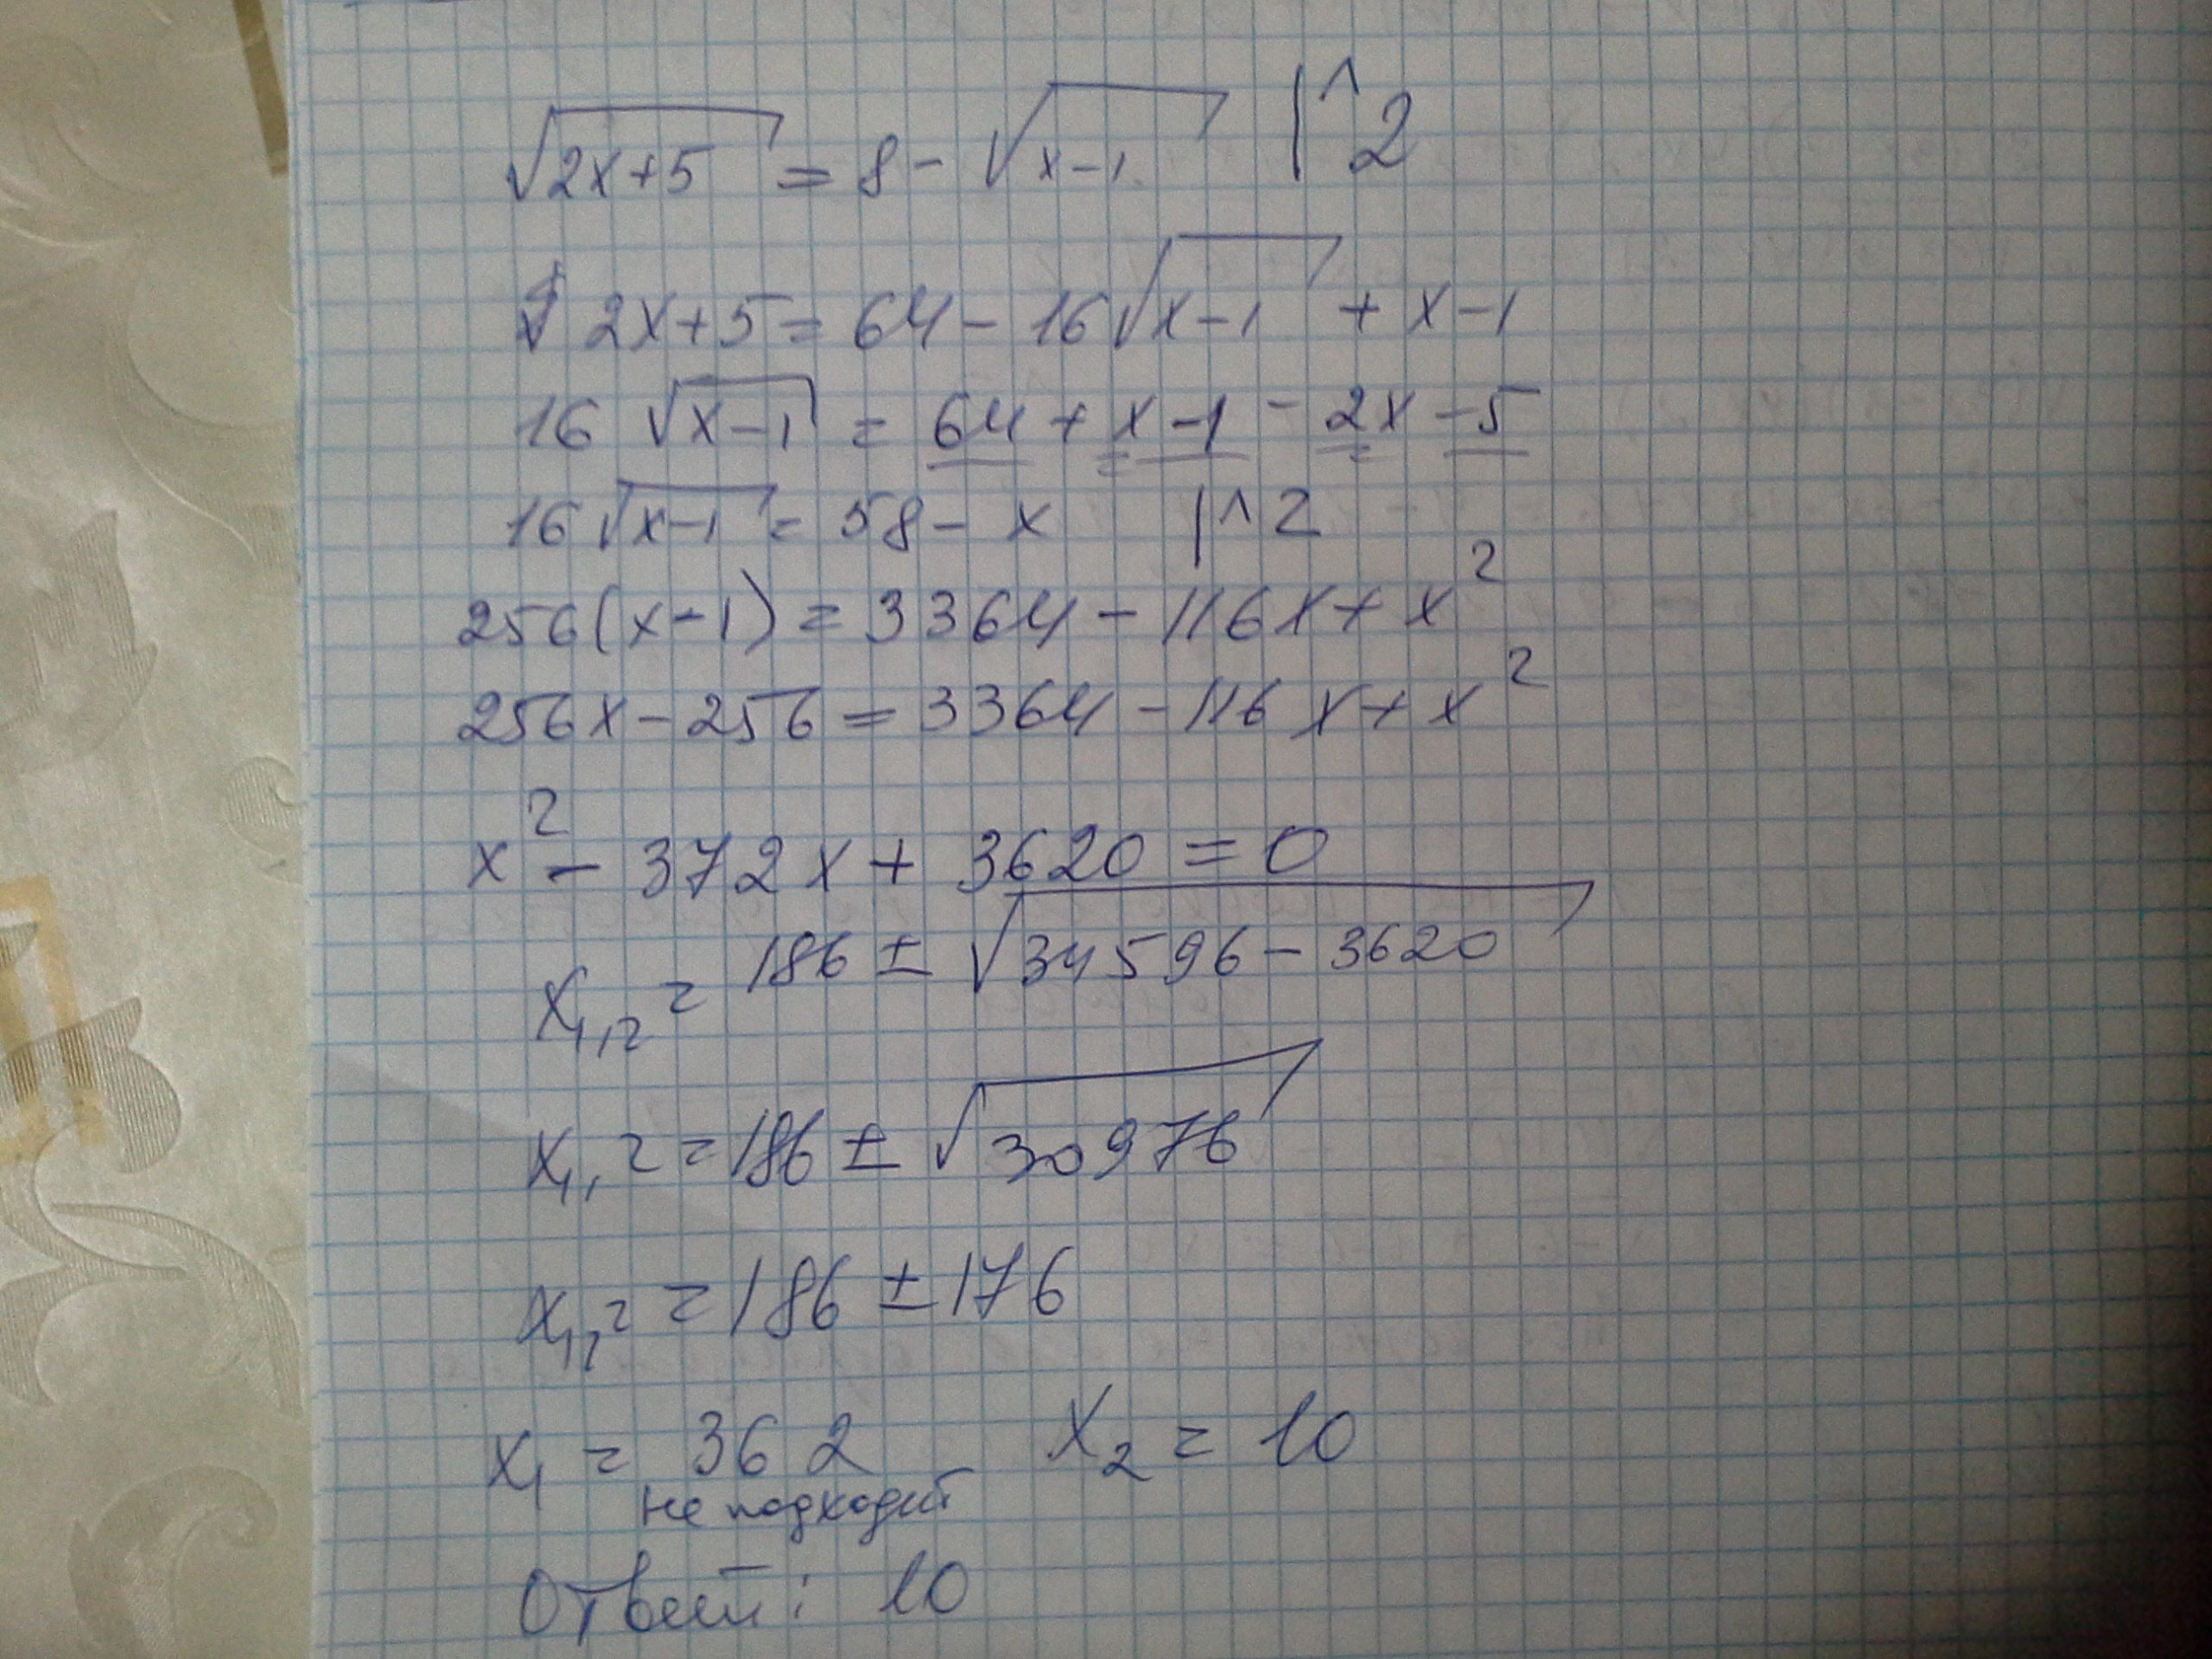 √2x+5 = 8 - √x-1 |^2
2x+5 = 64 - 16√x-1 + x-1
16 √x-1 = 64 + x - 1 - 2x - 5
16√x-1 = 58 - x |^2
256(x-1) = 3364 - 116x + x²
256x - 256 = 3364 - 116x + x²
x² - 372x + 3620 = 0
x₁,₂ = 186 ± √34596 - 3620
x₁,₂ = 186 ± √30976
x₁,₂ = 186 ± 176
x₁ = 362 x₂ = 10
не подходит
Ответ: 10